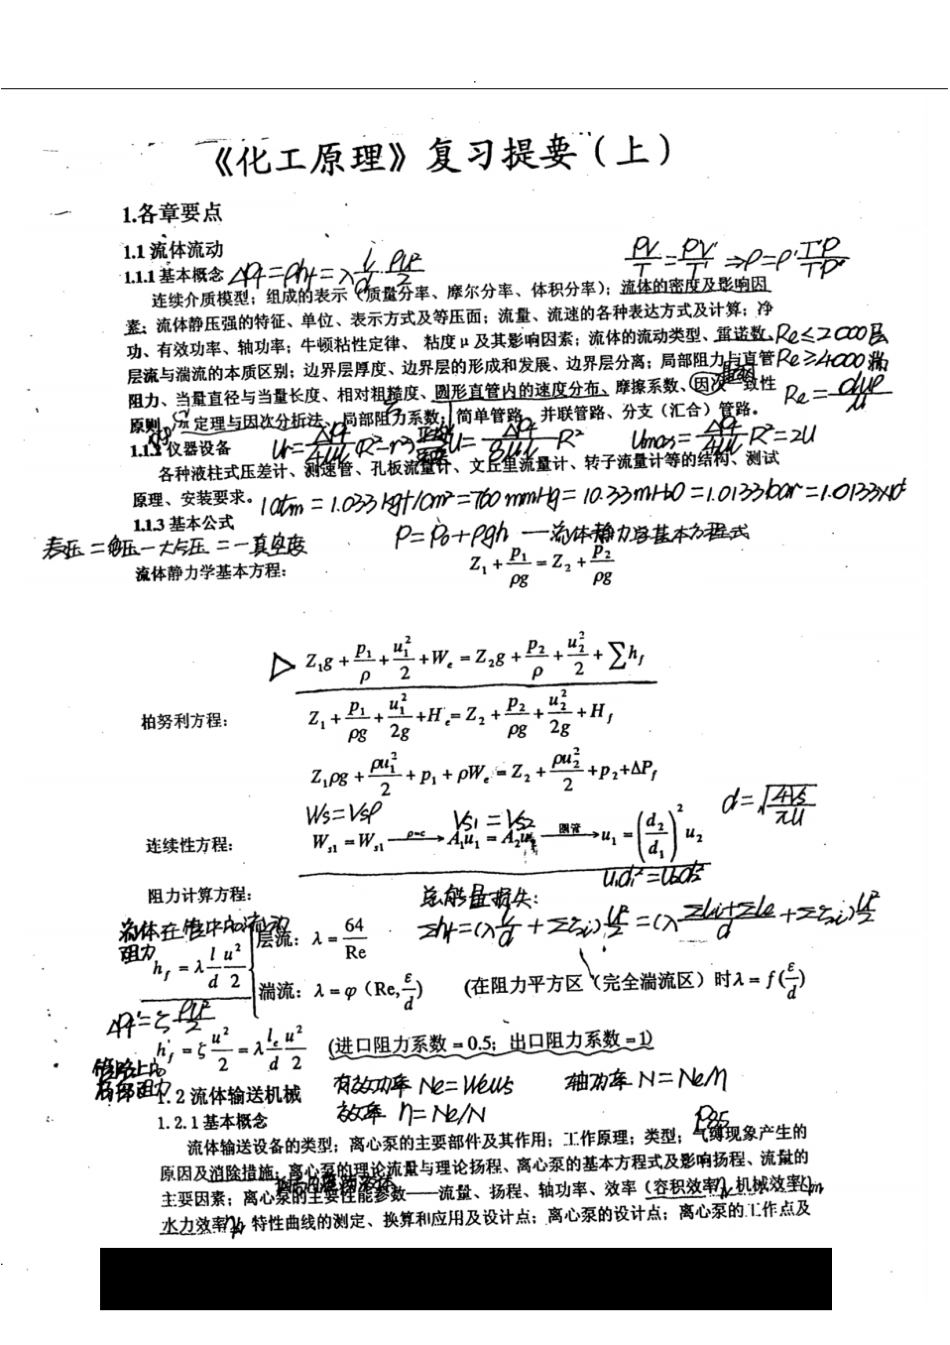 《化工原理》复习提要（上）
1.各章要点
1.1 流体流动
1.1.1 基本概念 ΔPf=ρhf=λ l/d · ρu²/2
PV/T = P'V'/T' ⇒ρ=ρ' T'P/TP'
连续介质模型；组成的表示（质量分率、摩尔分率、体积分率）；流体的密度及影响因
素；流体静压强的特征、单位、表示方式及等压面；流量、流速的各种表达方式及计算；净
功、有效功率、轴功率；牛顿粘性定律、粘度μ及其影响因素；流体的流动类型、雷诺数、Re≤2000层
层流与湍流的本质区别；边界层厚度、边界层的形成和发展、边界层分离；局部阻力与直管 Re≥4000湍
阻力、当量直径与当量长度、相对粗糙度、圆形直管内的速度分布、摩擦系数、因次一致性 Re=duρ/μ
原则、π定理与因次分析法、局部阻力系数；简单管路、并联管路、分支（汇合）管路。
1.1.2 仪器设备 Ur=ΔPf/4μl (R²-r²) U=ΔPf/8μl R² Umax=ΔPf/4μl R²=2U
各种液柱式压差计、测速管、孔板流量计、文丘里流量计、转子流量计等的结构、测试
原理、安装要求。1atm=1.033kgf/cm²=760mmHg=10.33mH₂O=1.0133bar=1.0133×10⁵
1.1.3 基本公式
P=P₀+ρgh —流体静力学基本方程式
表压=绝压-大气压=-真空度
流体静力学基本方程： Z₁+P₁/ρg=Z₂+P₂/ρg
Z₁g+p₁/ρ+u₁²/2+Wₑ=Z₂g+p₂/ρ+u₂²/2+∑hf
柏努利方程： Z₁+p₁/ρg+u₁²/2g+Hₑ=Z₂+p₂/ρg+u₂²/2g+Hf
Z₁ρg+ρu₁²/2+p₁+ρWₑ=Z₂+ρu₂²/2+p₂+ΔPf
Ws=Vsρ Vs1=Vs2 d=√(4Vs/πu)
连续性方程： Ws1=Ws1 —ρ=c→ A₁u₁=A₂u₂ —圆管→ u₁=(d₂/d₁)²u₂
u₁d₁²=u₂d₂²
阻力计算方程： 总能量损失：
流体在管中的流动阻力
层流：λ=64/Re ∑hf=(λ l/d+∑ζi)u²/2=(λ (∑li+∑le)/d+∑ζi)u²/2
hf=λ l/d u²/2
湍流：λ=φ（Re,ε/d） (在阻力平方区（完全湍流区）时λ=f(ε/d)
ΔPf'=ζ ρu²/2
h'f=ζ u²/2=λ le/d u²/2 (进口阻力系数=0.5；出口阻力系数=1)
管路上的局部阻力
有效功率 Ne=WeWs 轴功率 N=Ne/η
1.2 流体输送机械
效率 η=Ne/N
1.2.1 基本概念
P85
流体输送设备的类型；离心泵的主要部件及其作用；工作原理；类型；气缚现象产生的
原因及消除措施；离心泵的理论流量与理论扬程、离心泵的基本方程式及影响扬程、流量的
主要因素；离心泵的主要性能参数——流量、扬程、轴功率、效率（容积效率ηv、机械效率ηm
水力效率ηh 特性曲线的测定、换算和应用及设计点；离心泵的设计点；离心泵的工作点及